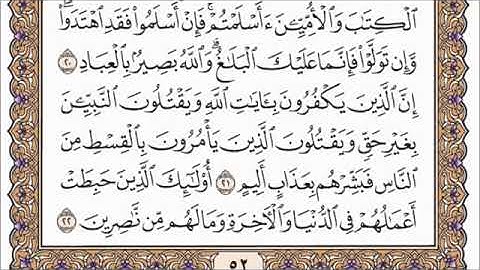 ٱلۡكِتَٰبَ وَٱلۡأُمِّيِّـۧنَ ءَأَسۡلَمۡتُمۡۚ فَإِنۡ أَسۡلَمُواْ فَقَدِ ٱهۡتَدَواْۖ
وَّإِن تَوَلَّوۡاْ فَإِنَّمَا عَلَيۡكَ ٱلۡبَلَٰغُۗ وَٱللَّهُ بَصِيرُۢ بِٱلۡعِبَادِ ٢٠
إِنَّ ٱلَّذِينَ يَكۡفُرُونَ بِـَٔايَٰتِ ٱللَّهِ وَيَقۡتُلُونَ ٱلنَّبِيِّـۧنَ
بِغَيۡرِ حَقّٖ وَيَقۡتُلُونَ ٱلَّذِينَ يَأۡمُرُونَ بِٱلۡقِسۡطِ مِنَ
ٱلنَّاسِ فَبَشِّرۡهُم بِعَذَابٍ أَلِيمٍ ٢١ أُوْلَٰٓئِكَ ٱلَّذِينَ حَبِطَتۡ
أَعۡمَٰلُهُمۡ فِي ٱلدُّنۡيَا وَٱلۡأٓخِرَةِ وَمَا لَهُم مِّن نَّٰصِرِينَ ٢٢
٥٢